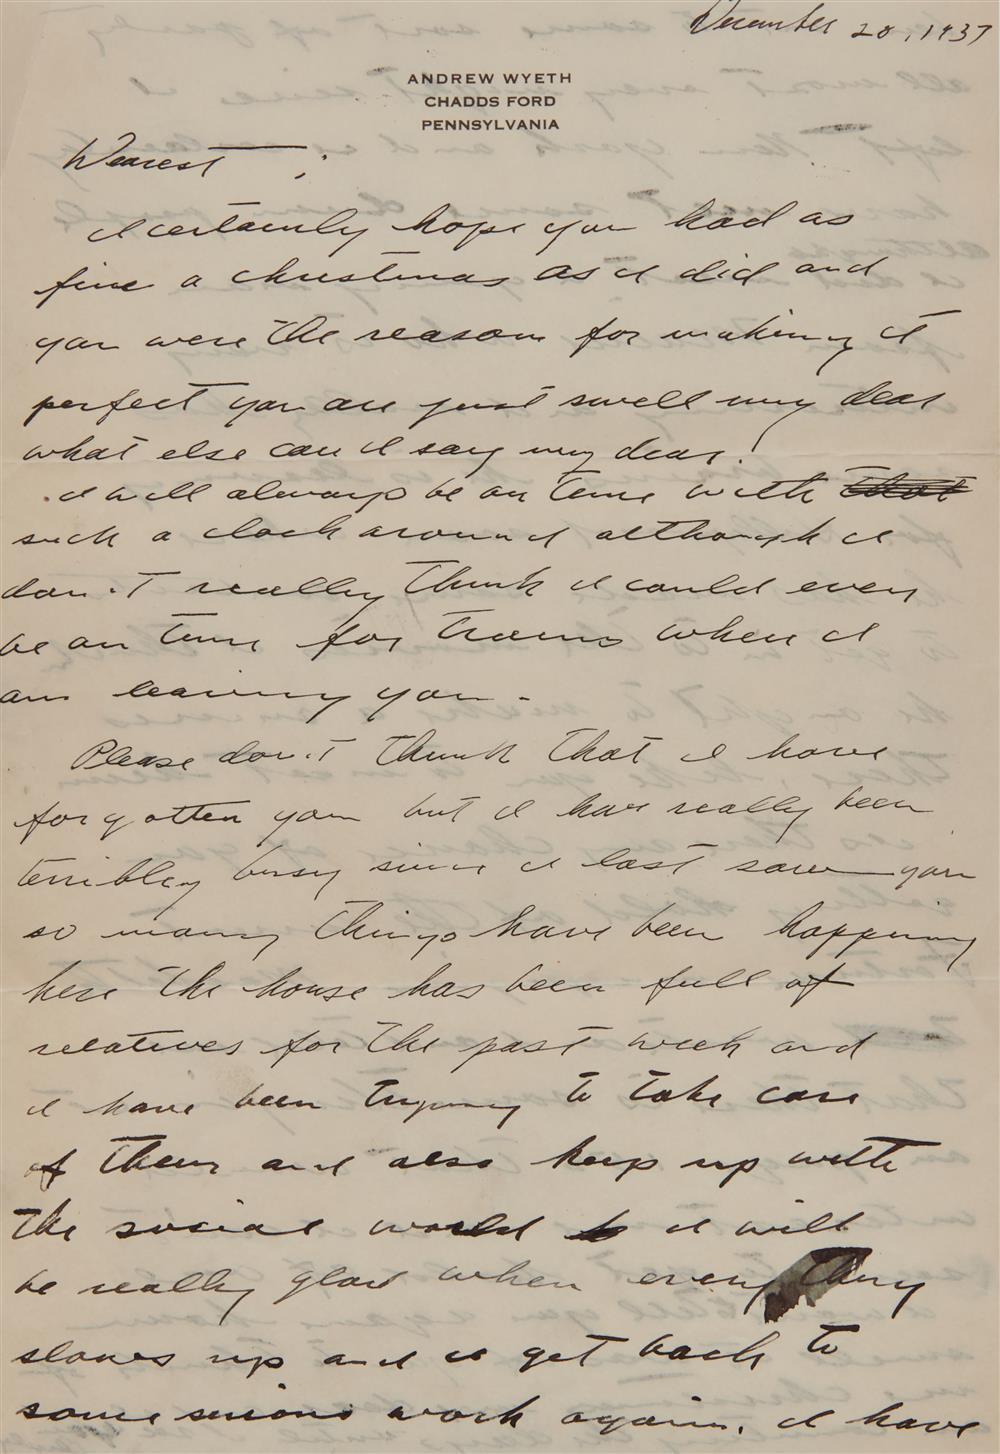 December 28, 1937
ANDREW WYETH
CHADDS FORD
PENNSYLVANIA
Dearest ;
I certainly hope you had as
fine a christmas as I did and
you were the reason for making it
perfect you are just swell my dear
what else can I say my dear!
I will always be on time with that
such a clock around although I
don't really think I could ever
be on time for trains when I
am leaving you.
Please don't think that I have
forgotten you but I have really been
terribley busy since I last saw you
so many things have been happining
here the house has been full of
relatives for the past week and
I have been trying to take care
of them and also keep up with
the social world I will
be really glad when every thing
slows up and I get back to
some serious work again. I have